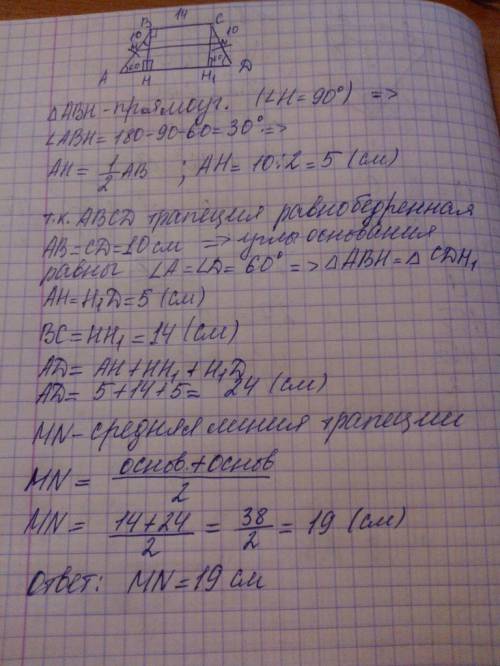 14
B C
10 10
M N
60 60
A H H₁ D
△ABH - прямоуг. (∠H = 90°) =>
∠ABH = 180-90-60 = 30° =>
AH = 1/2 AB ; AH = 10:2 = 5 (см)
т.к. ABCD трапеция равнобедренная
AB = CD = 10 см => углы основания
равны ∠A = ∠D = 60° => △ABH = △CDH₁
AH = H₁D = 5 (см)
BC = HH₁ = 14 (см)
AD = AH + HH₁ + H₁D
AD = 5 + 14 + 5 = 24 (см)
MN - средняя линия трапеции
MN = основ. + основ / 2
MN = 14 + 24 / 2 = 38 / 2 = 19 (см)
Ответ: MN = 19 см